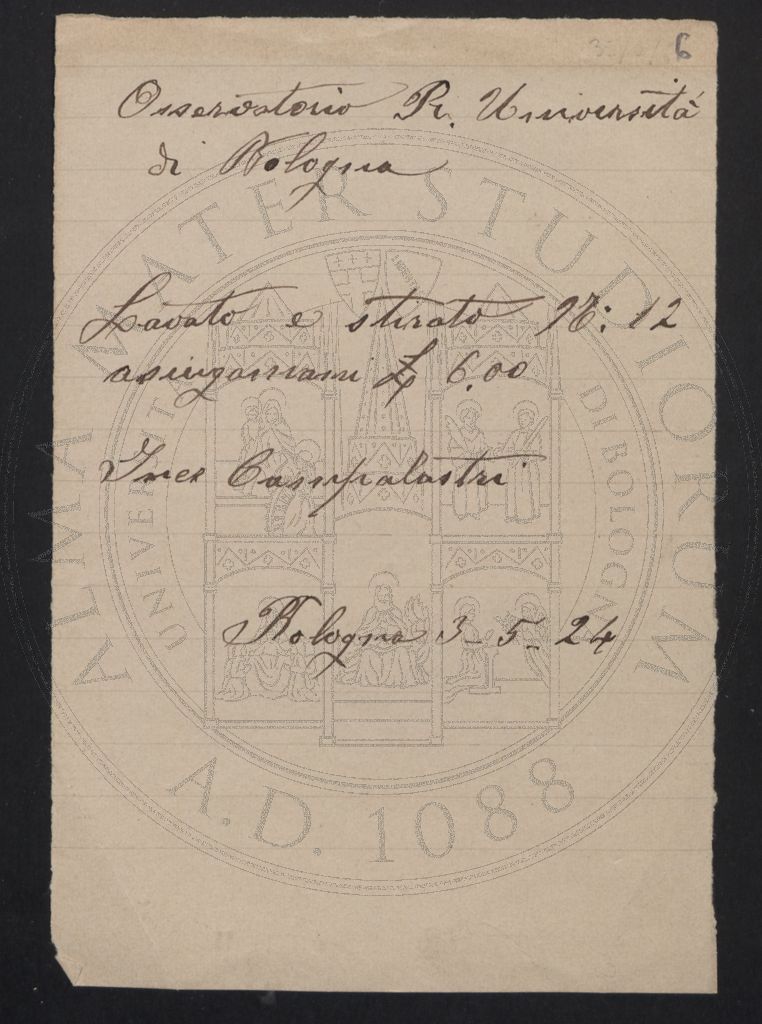 6
Osservatorio R. Università
di Bologna
Lavato e stirato N: 12
asciugamani £ 6.00
Ines Campalastri
Bologna 3-5-24
ALMA MATER STUDIORUM
UNIVERSITÀ DI BOLOGNA
A.D. 1088